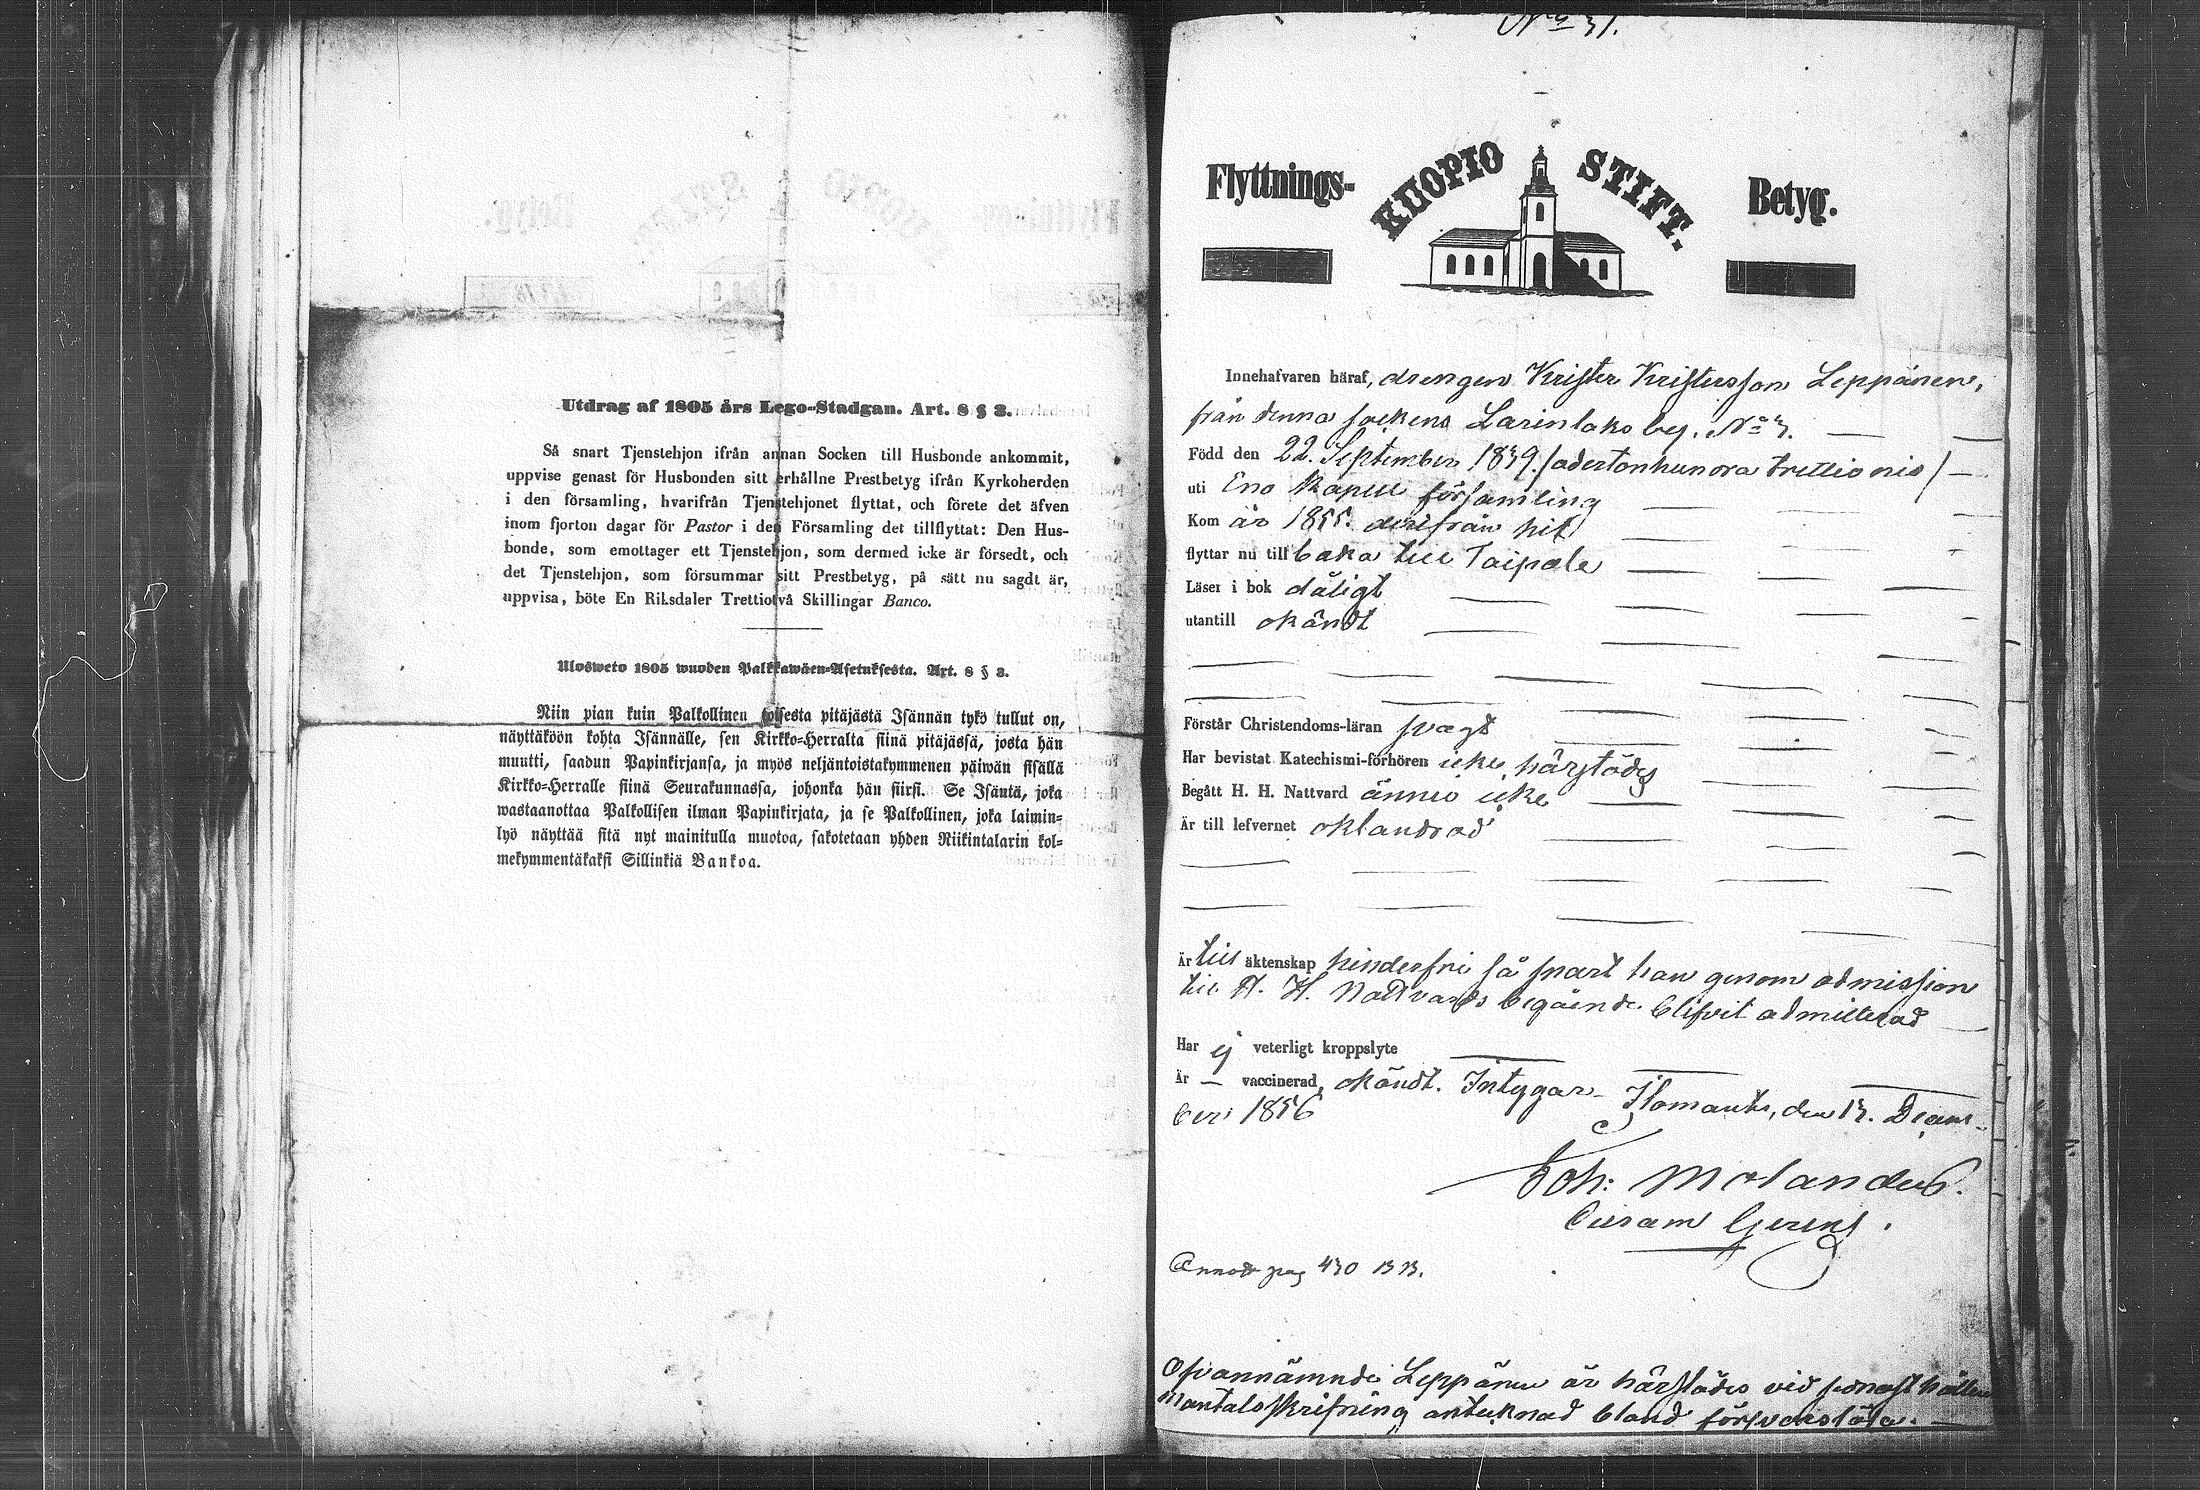 Utdrag af 1805 års Lego-Stadgan. Art. 8 § 3.
Så snart Tjenstehjon ifrån annan Socken till Husbonde ankommit,
uppvise genast för Husbonden sitt erhållne Prestbetyg ifrån Kyrkoherden
i den församling, hvarifrån Tjenstehjonet flyttat, och förete det äfven
inom fjorton dagar för Pastor i den Församling det tillflyttat: Den Hus-
bonde, som emottager ett Tjenstehjon, som dermed icke är försedt, och
det Tjenstehjon, som försummar sitt Prestbetyg, på sätt nu sagdt är,
uppvisa, böte En Riksdaler Trettiotvå Skillingar Banco.
Ulosweto 1805 wuoden Palkkawäen-Asetuksesta. Art. 8 § 3.
Niin pian kuin Palkollinen toisesta pitäjästä Isännän tykö tullut on,
näyttäköön kohta Isännälle, sen Kirkko-Herralta siinä pitäjässä, josta hän
muutti, saadun Papinkirjansa, ja myös neljäntoistakymmenen päiwän sisällä
Kirkko-Herralle siinä Seurakunnassa, johonka hän siirsi. Se Isäntä, joka
wastaanottaa Palkollisen ilman Papinkirjata, ja se Palkollinen, joka laimin-
lyö näyttää sitä nyt mainitulla muotoa, sakotetaan yhden Riikintalarin kol-
mekymmentäkaksi Sillinkiä Bankoa.
No 31.
Flyttnings- KUOPIO STIFT. Betyg.
Innehafvaren häraf, drengen Krister Kristersson Leppänen,
från denna sockens Larinlaks by. No 3.
Född den 22. September 1839. /adertonhundra trettio nio/
uti Eno Kapell församling
Kom år 1855. derifrån hit
flyttar nu tillbaka till Taipale
Läser i bok dåligt
utantill okändt
Förstår Christendoms-läran svagt
Har bevistat Katechismi-förhören icke härstädes
Begått H. H. Nattvard ännu icke
Är till lefvernet oklandrad
Är till äktenskap hinderfri så snart han genom admission
till H. H. Nattvards begående blifvit admitterad
Har ej veterligt kroppslyte
Är — vaccinerad, okändt. Intygar Ilomants, den 13. Decem-
ber 1856
Joh: Molander.
Curam Gerens.
Annot pag 430
Ofvannämnde Leppänen är härstädes vid sednast hållen
Mantalsskrifning antecknad bland försvarslösa.